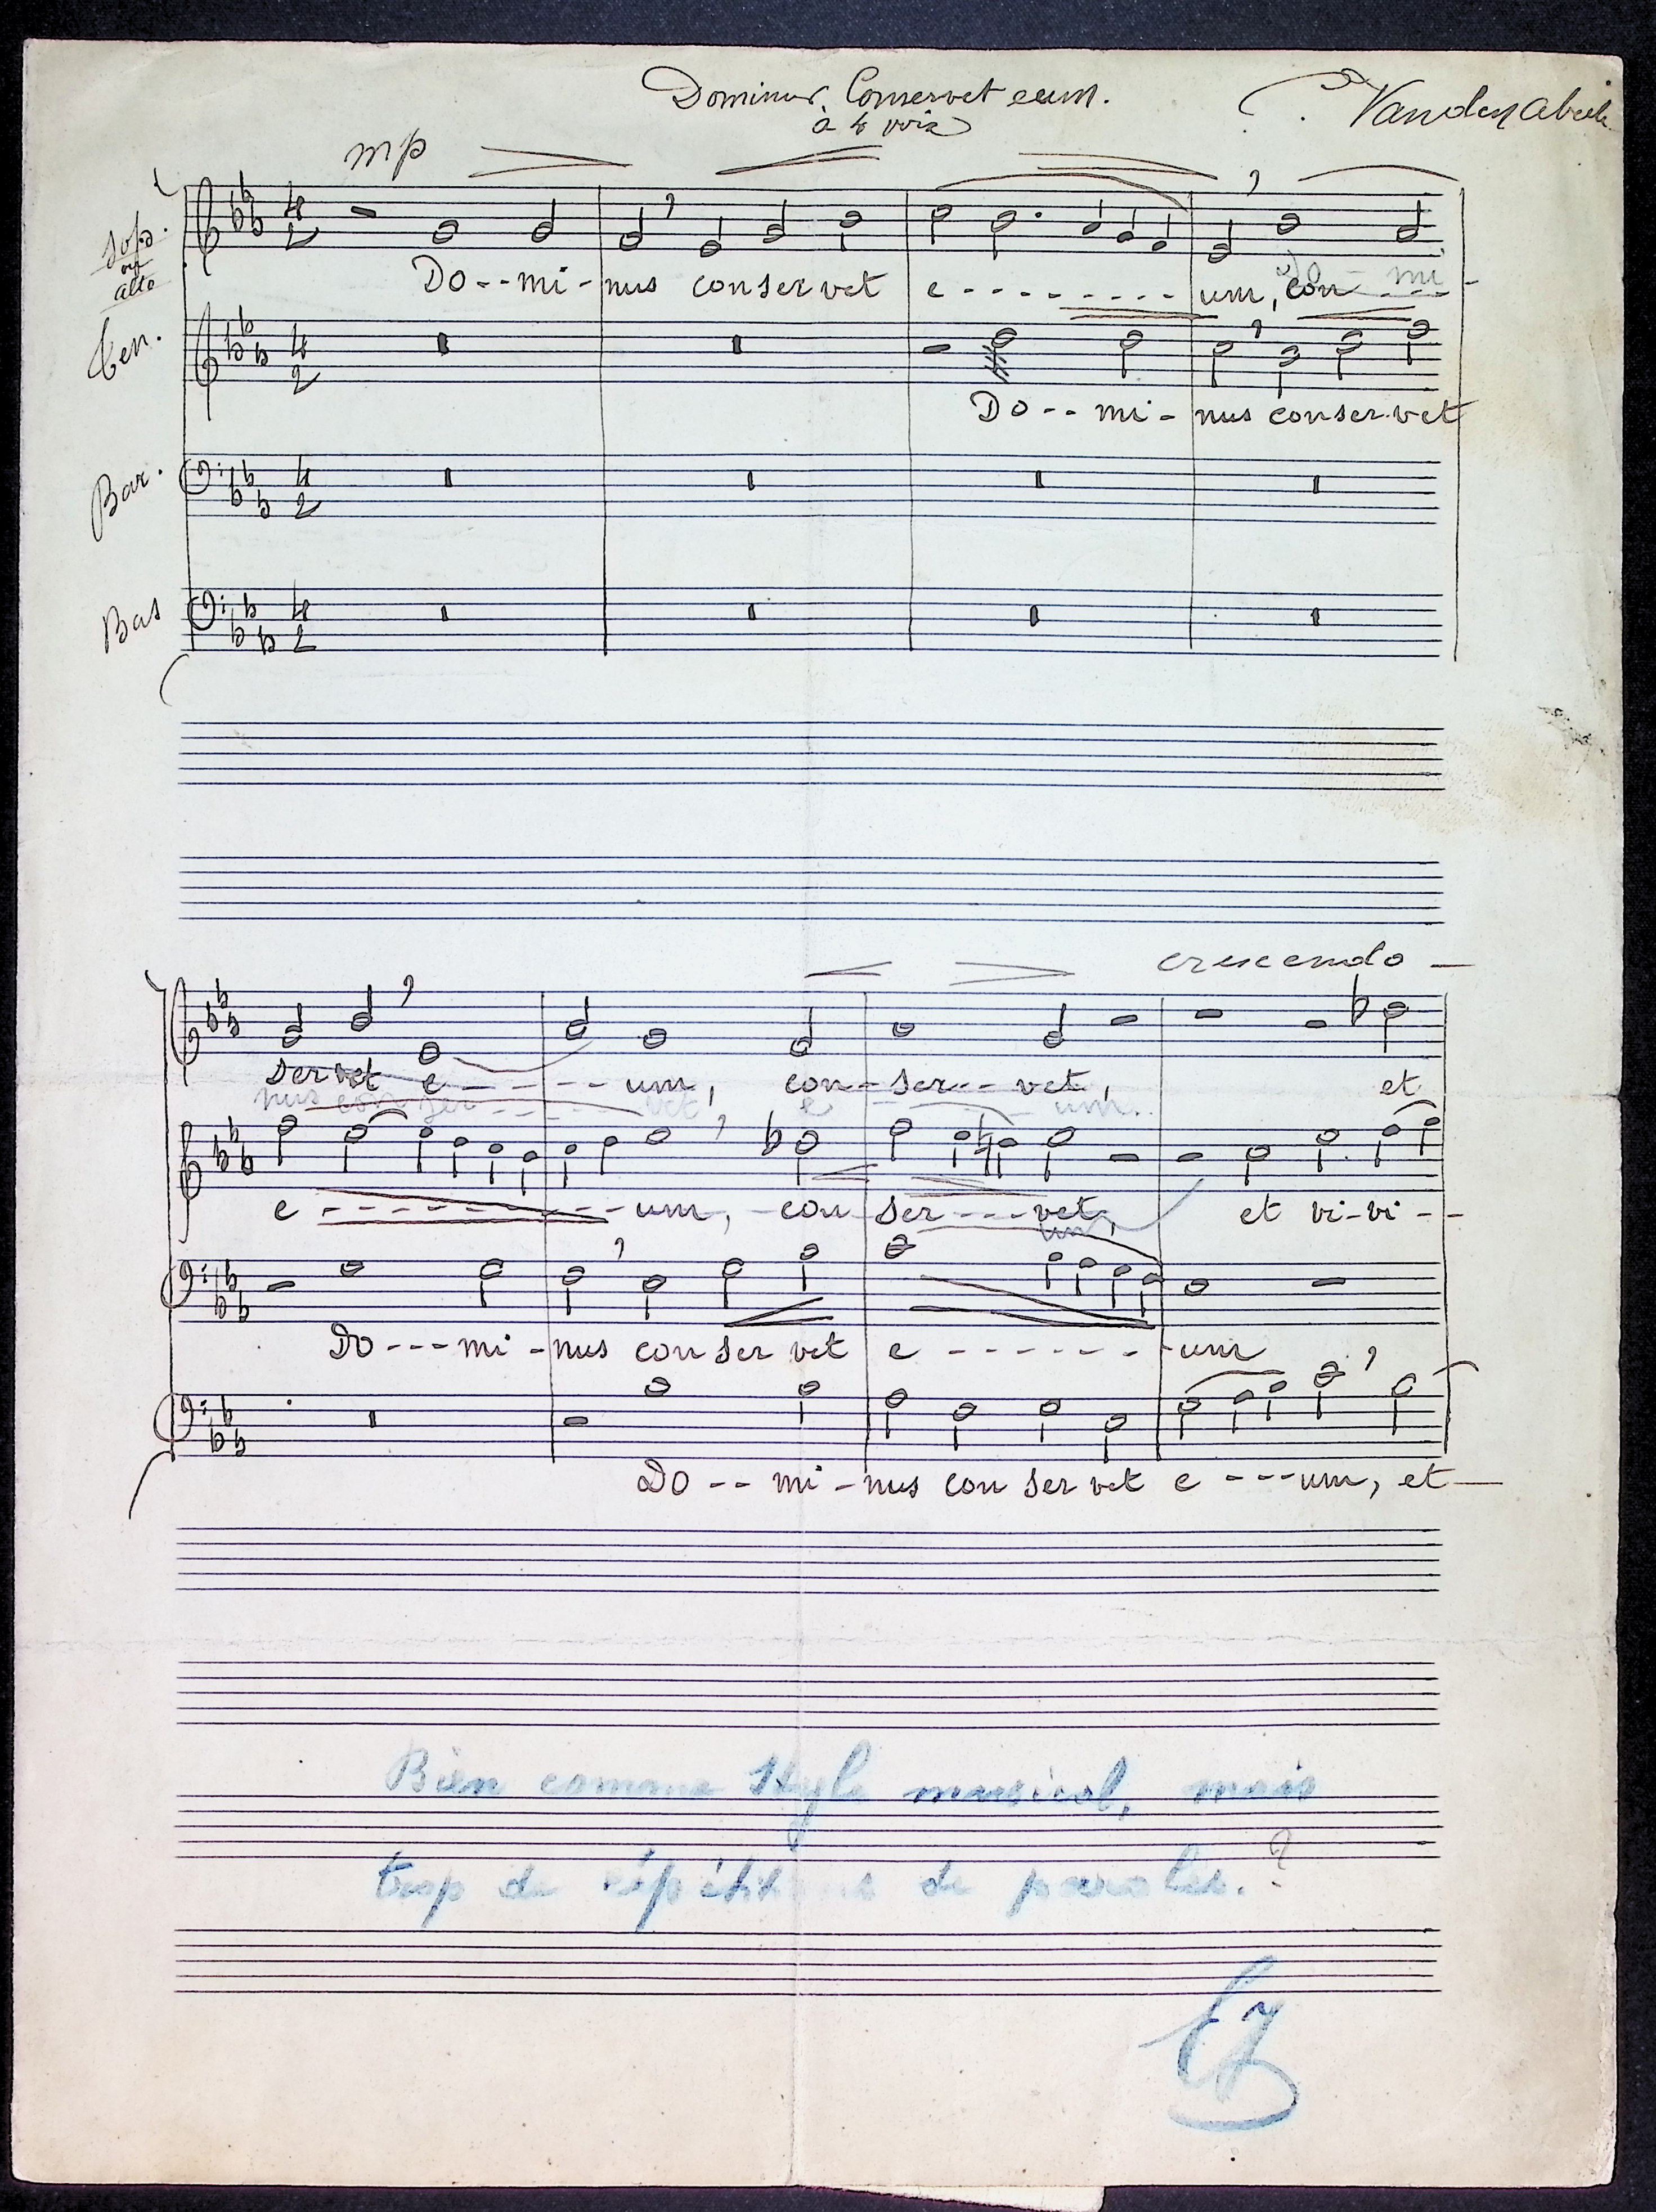 Dominus Conservet eum.
à 4 voix
Vanden Abeele
mp
Sop. ou alto
Do--mi-nus conservet e--------um, con
Do-mi-
Ten.
Do--mi-nus conservet
Bar.
Bas
crescendo
servet e-----um, con-ser--vet, et
nus conser-----vet e---um.
e--------um, con ser---vet, et vi-vi--
um,
Do---mi-nus conservet e------um
Do--mi-nus conservet e---um, et
Bien comme style musical, mais
trop de répétitions de paroles.?